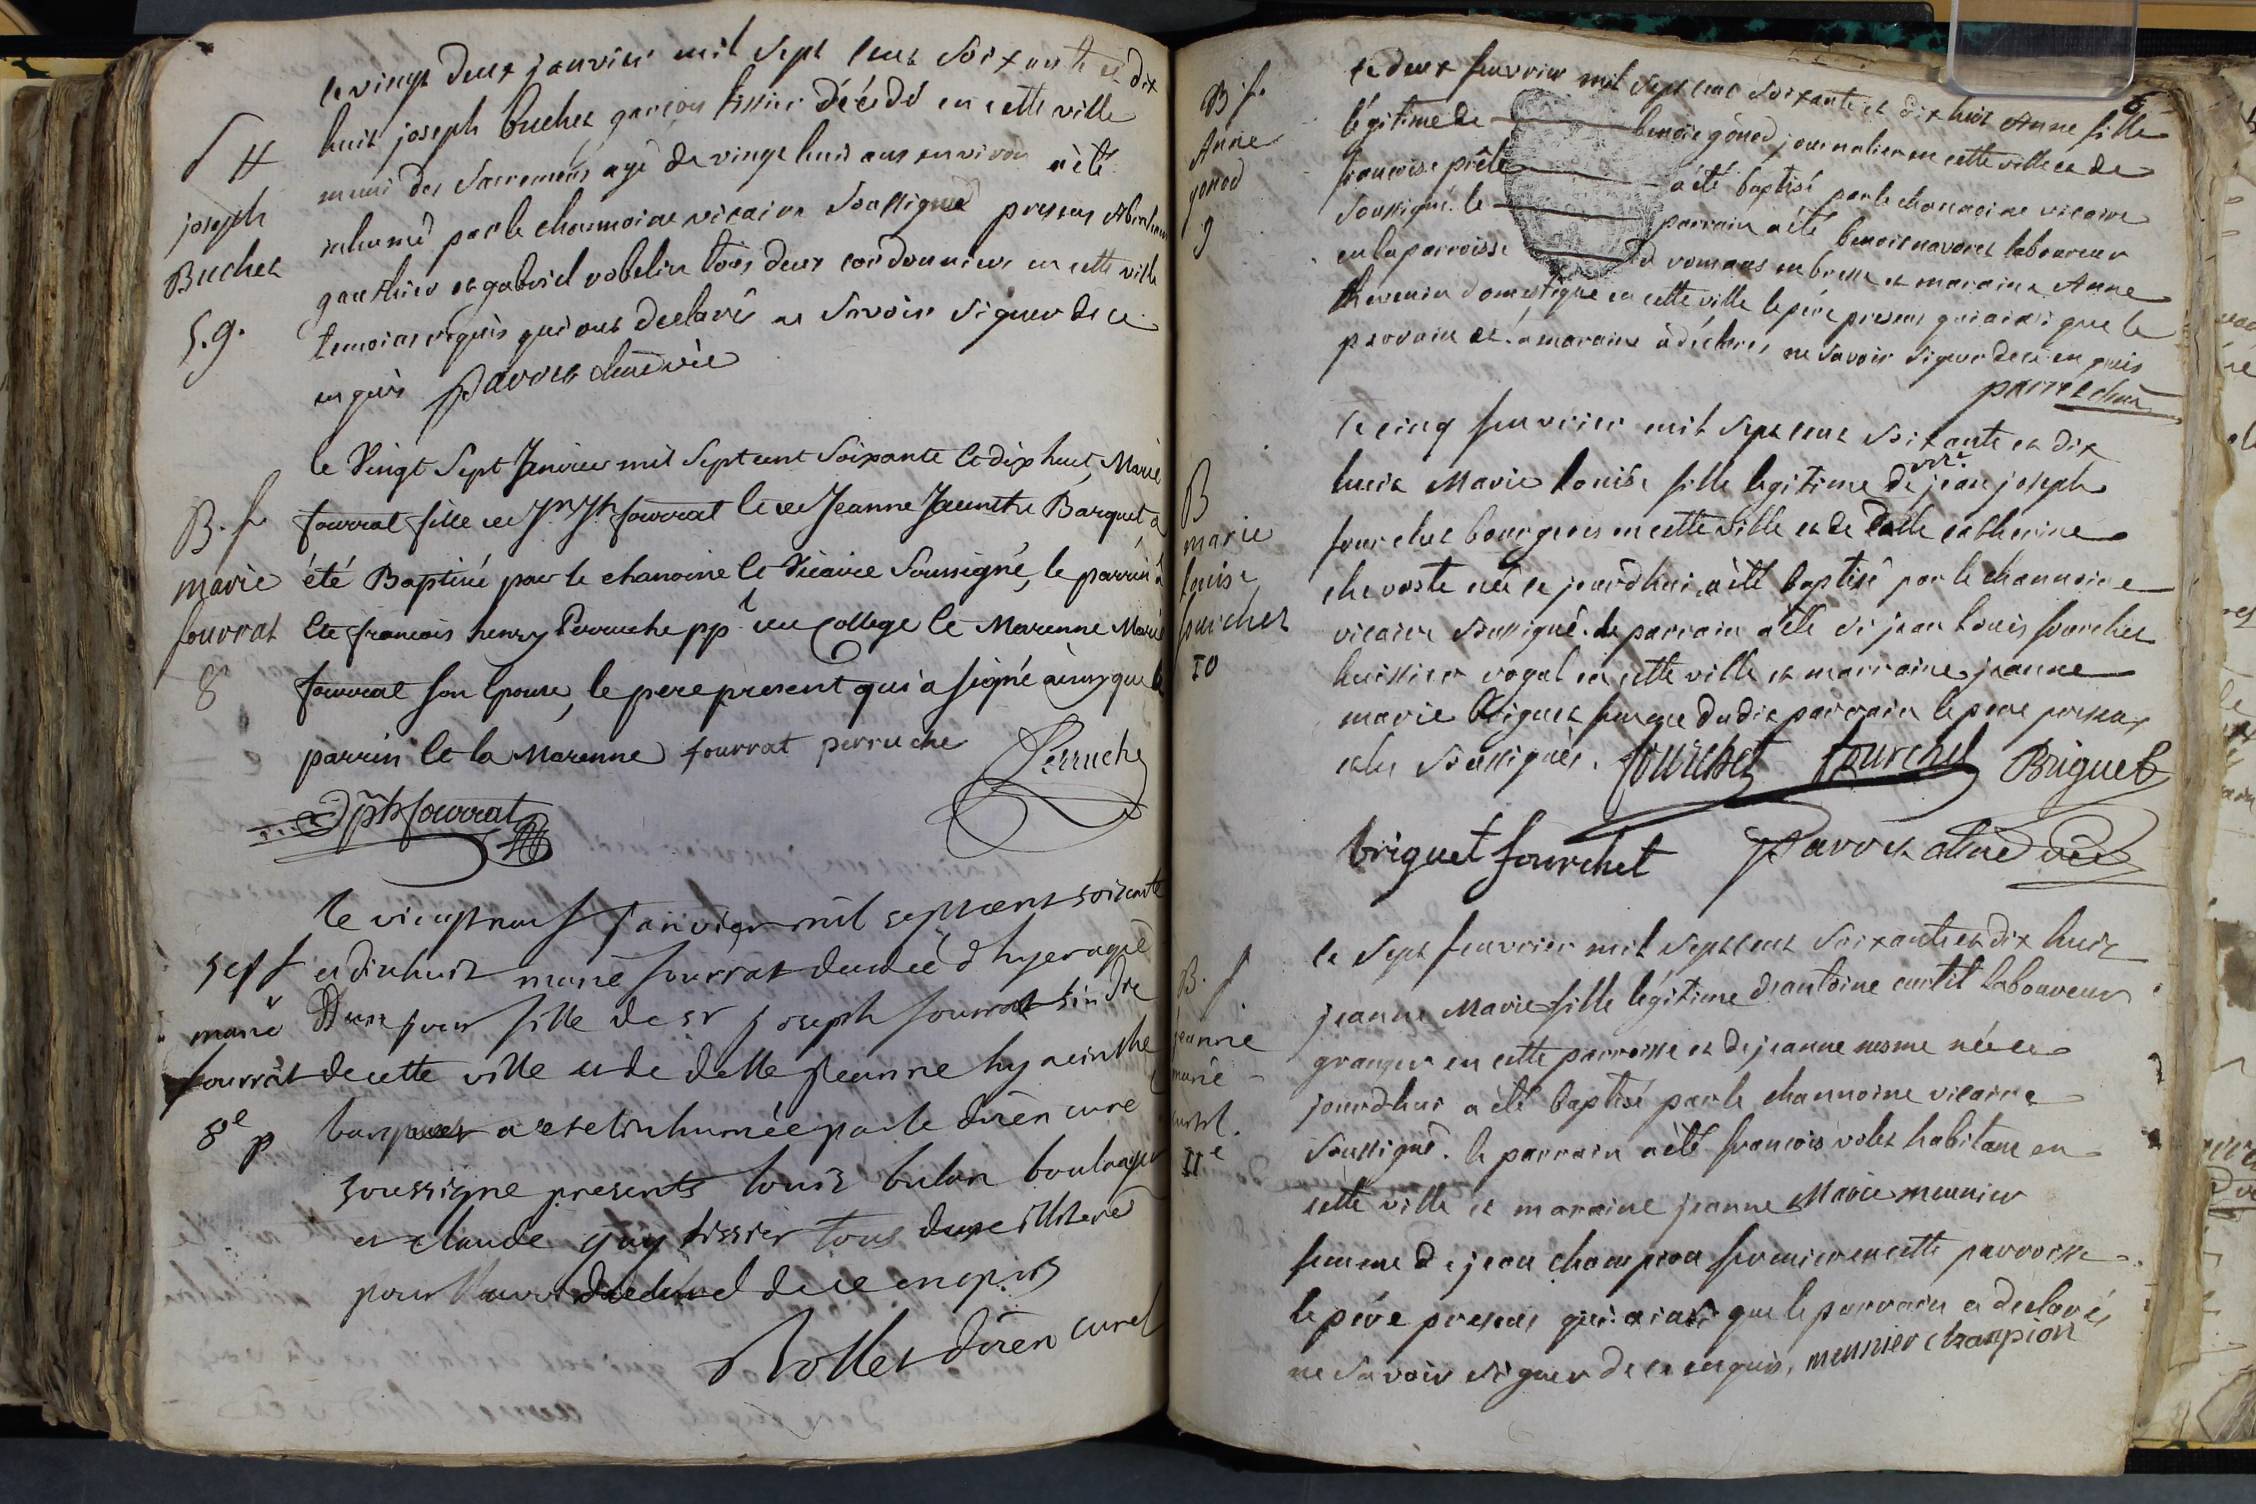 le vingt deux janvier mil sept cent soixante et dix
huit joseph buchet garçon tissier décédé en cette ville
muni des sacremens agé de vingt huit ans environ a été
inhumé par le channoine vicaire soussigné presens Abraham
gauthier et gabriel robelin tous deux cordonniers en cette ville
temoins requis qui ont declarés ne savoir signer de ce
enquis parroct vic
S H
joseph
Buchet
5. g.
le Vingt Sept Janvier mil Sept cent Soixante et dix huit, Marie
fourrat fille de Jn Jh fourrat et de Jeanne Jacinthe Barquet, a
été Baptisée par le chanoine et Vicaire Soussigné, le parrin a
été francois henry Perruche pp.l du College et Marenne Marie
fourrat son epouse, le pere present qui a signé ainsy que le
parrin et la Marenne fourrat perruche Perruche
Jph fourrat
B. f
marie
fourrat
8
le vingt neuf janvier mil sept cent soixante
et dix huit marie fourrat decedée d hyer agée
d'un jour fille de sr joseph fourrat sindic
de cette ville et de delle jeanne hyacinthe
barquet a eté inhumée par le doïen curé
soussigné presents louis bulon boulanger
et claude guy tissier tous deux illiteré
pour l'avoir declaré de ce enquis
Rollet doïen curé
sept
marie
fourrat
8e p
6
le deux fevrier mil sept cent soixante et dix huit Anne fille
légitime de benoit gonod journalier en cette ville et de
francoise prêle a été baptisé par le channoine vicaire
soussigné. le parrain a été benoit navoret laboureur
en la parroisse de romans en bresse et maraine Anne
thevenin domestique en cette ville le père present qui ainsi que le
parrain et la maraine a déclarés ne savoir signer de ce enquis
B. f.
Anne
gonod
9
le cinq fevrier mil sept cent soixante et dix
huit Marie louise fille legitime de jean joseph
fourchet bourgeois en cette ville et de delle catherine
chevaste née ce jourdhui, a été baptisé par le channoine
vicaire soussigné. le parrain a été sr jean louis fourchet
huissier royal en cette ville et marraine jeanne
marie briguet femme dudit parrain le père present
et les soussignés. fourchet fourchet Briguet
briguet fourchet parroct vic
B
marie
louise
fourchet
10
le sept fevrier mil sept cent soixante et dix huit
jeanne Marie fille légitime d'antoine curtil laboureur
granger en cette parroisse et de jeanne mome née ce
jourdhui a été baptisé par le channoine vicaire
soussigné. le parrain a été francois volet habitant en
cette ville et maraine jeanne Marie meunier
femme de jean champion fermier en cette parroisse
le père present qui ainsi que le parrain a declarés
ne savoir signer de ce enquis. meunier champion
B. f
jeanne
marie
curtil.
11e